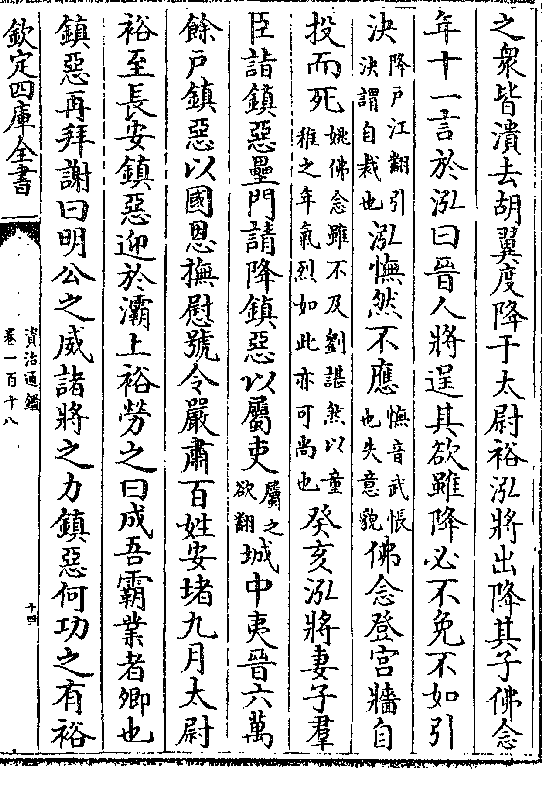 之衆皆潰去胡翼度降于太尉裕泓將出降其子佛念
年十一言於泓曰晉人將逞其欲雖降必不免不如引
決降户江翻引決謂自裁也泓憮然不應憮音武悵也失意貌佛念登宫牆自
投而死姚佛念雖不及劉諶然以童稚之年氣烈如此亦可尚也癸亥泓將妻子羣
臣詣鎮惡壘門請降鎮惡以屬吏屬之欲翻城中夷晉六萬
餘戶鎮惡以國恩撫慰號令嚴肅百姓安堵九月太尉
裕至長安鎮惡迎於灞上裕勞之曰成吾霸業者卿也
鎮惡再拜謝曰明公之威諸將之力鎮惡何功之有裕
欽定四庫全書
資治通鑑
卷一百十八
十四